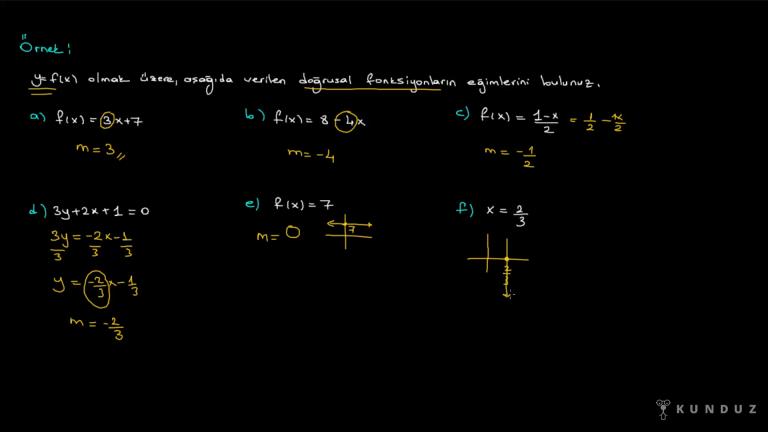 Örnek:
y=f(x) olmak üzere, aşağıda verilen doğrusal fonksiyonların eğimlerini bulunuz.
a) f(x) = 3x+7
m = 3
b) f(x) = 8 - 4x
m = -4
c) f(x) = (1-x)/2 = 1/2 - 1x/2
m = -1/2
d) 3y+2x+1=0
3y/3 = -2x/3 - 1/3
y = -2/3 x - 1/3
m = -2/3
e) f(x) = 7
m = 0
7
f) x = 2/3
2/3
KUNDUZ